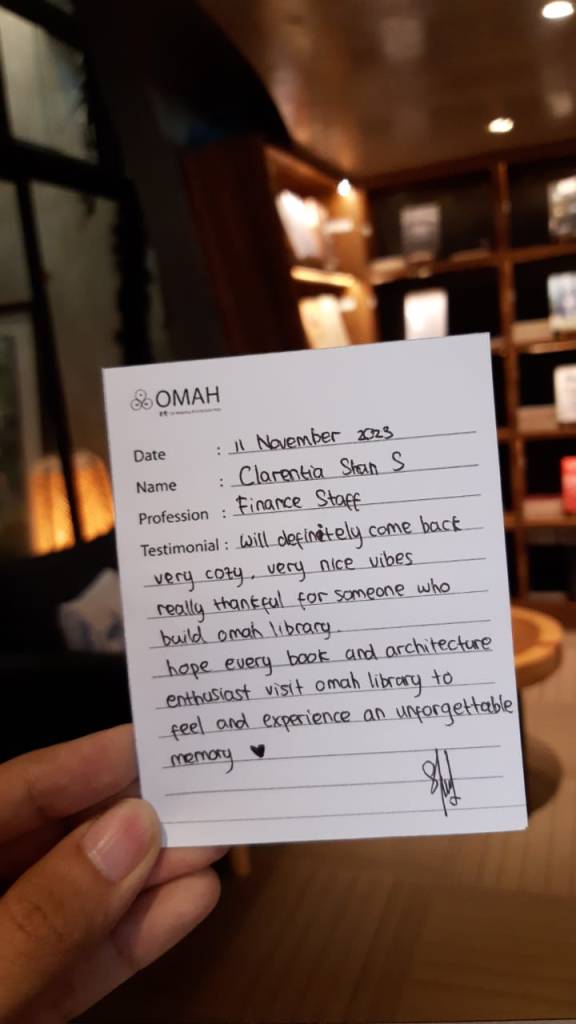 OMAH
Date : 11 November 2023
Name : Clarentia Shan S
Profession : Finance Staff
Testimonial : Will definitely come back
very cozy, very nice vibes
really thankful for someone who
build omah library.
hope every book and architecture
enthusiast visit omah library to
feel and experience an unforgettable
memory ♥